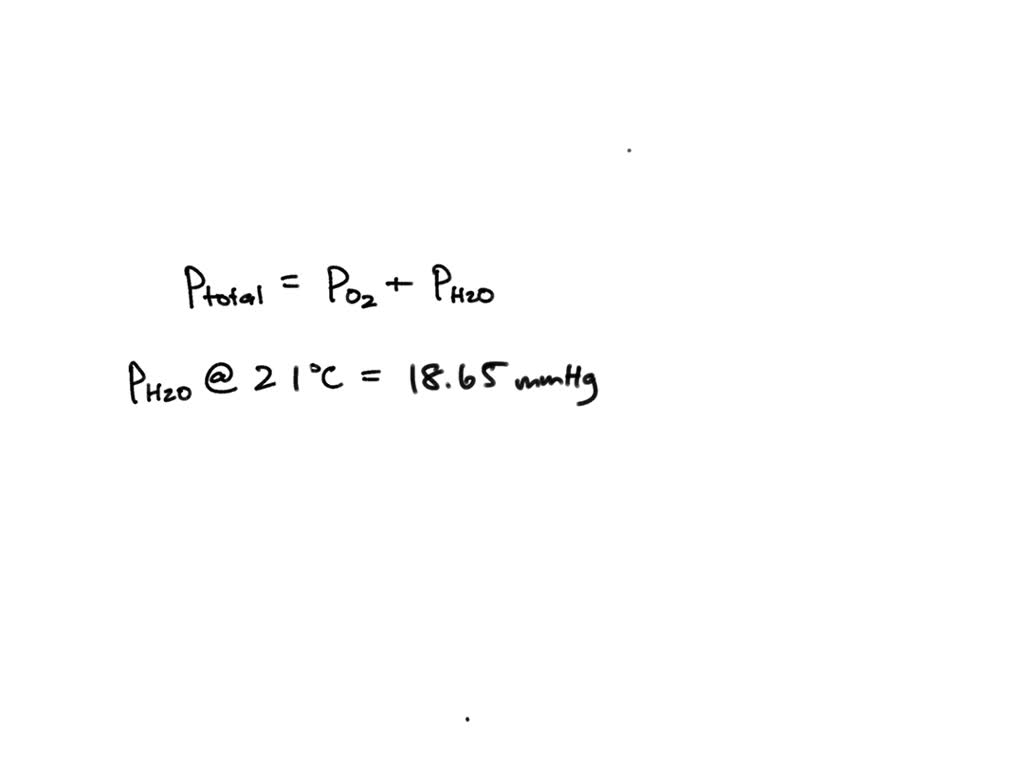 Ptotal = PO2 + PH2O
PH2O @ 21°C = 18.65 mmHg